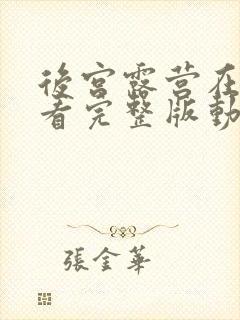 後宮露营在
看完整版動
張金華